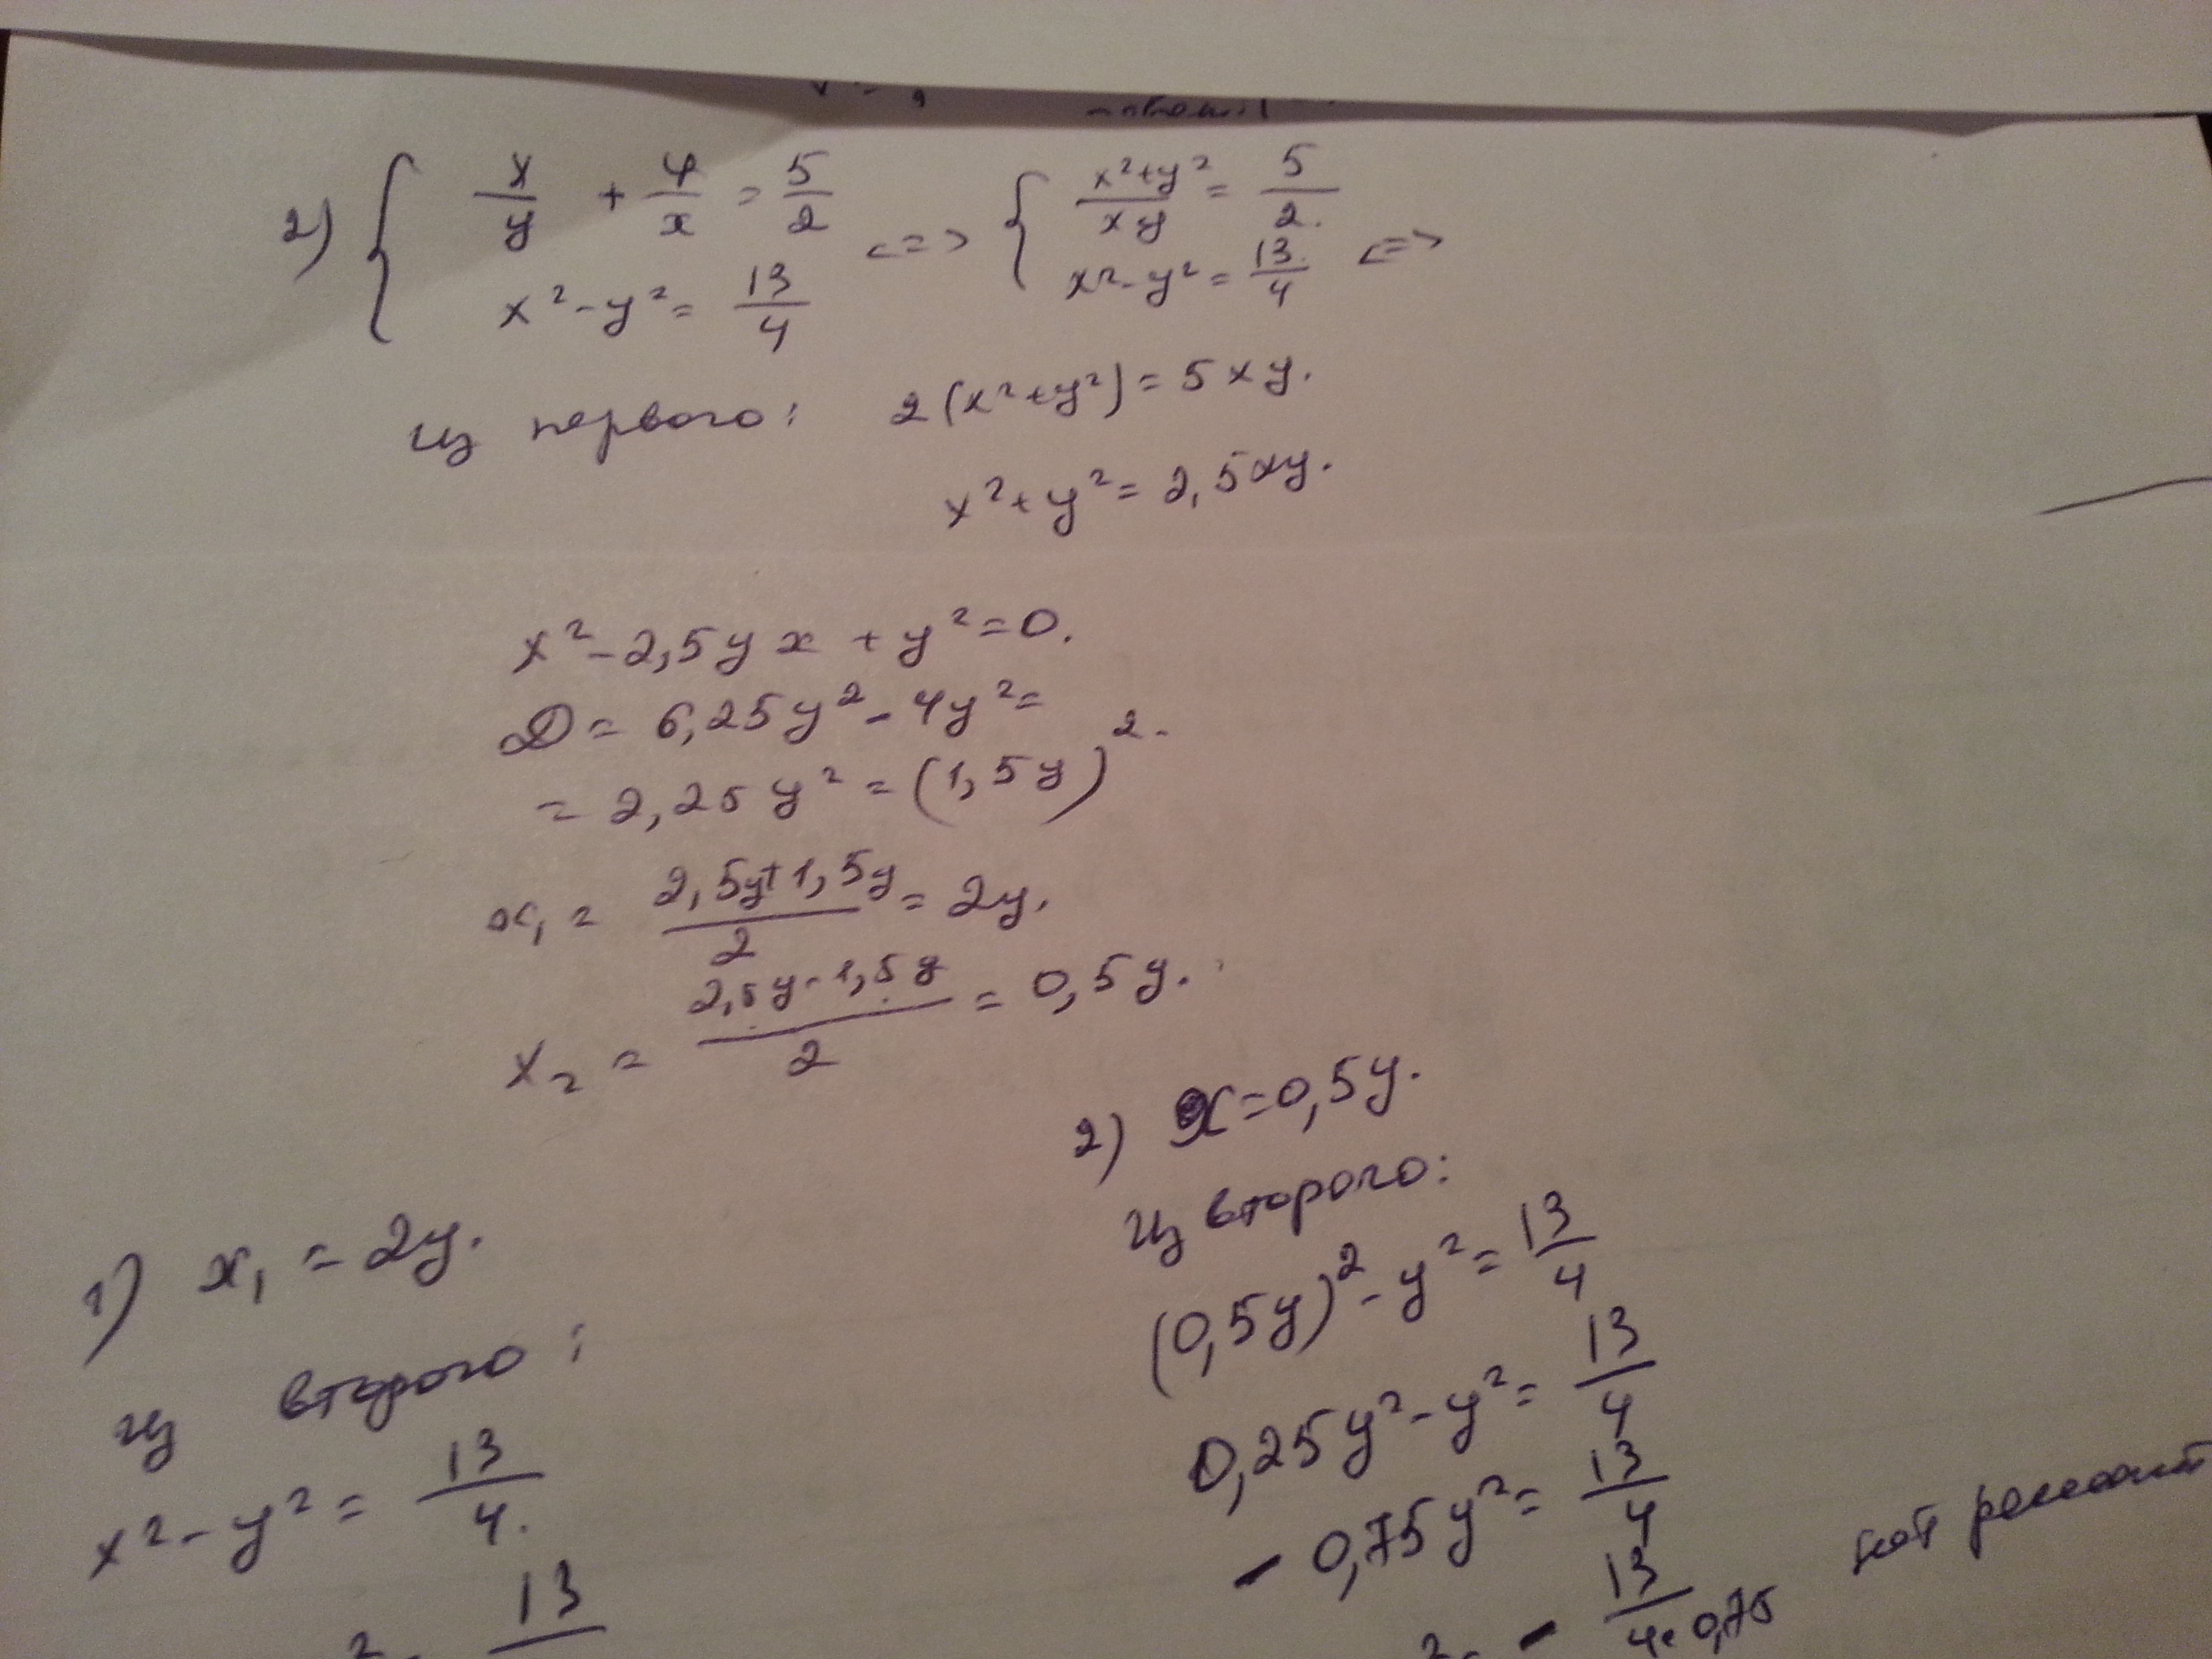 2) { x/y + y/x = 5/2 <=> { (x²+y²)/(xy) = 5/2. <=>
x² - y² = 13/4 x² - y² = 13/4
Из первого: 2(x²+y²) = 5xy.
x² + y² = 2,5xy.
x² - 2,5yx + y² = 0.
D = 6,25y² - 4y² =
= 2,25y² = (1,5y)².
x₁ = (2,5y+1,5y)/2 = 2y.
x₂ = (2,5y-1,5y)/2 = 0,5y.
1) x₁ = 2y.
Из второго:
x² - y² = 13/4.
13
2) x = 0,5y.
Из второго:
(0,5y)² - y² = 13/4
0,25y² - y² = 13/4
- 0,75y² = 13/4
- 13/(4·0,75) нет решений